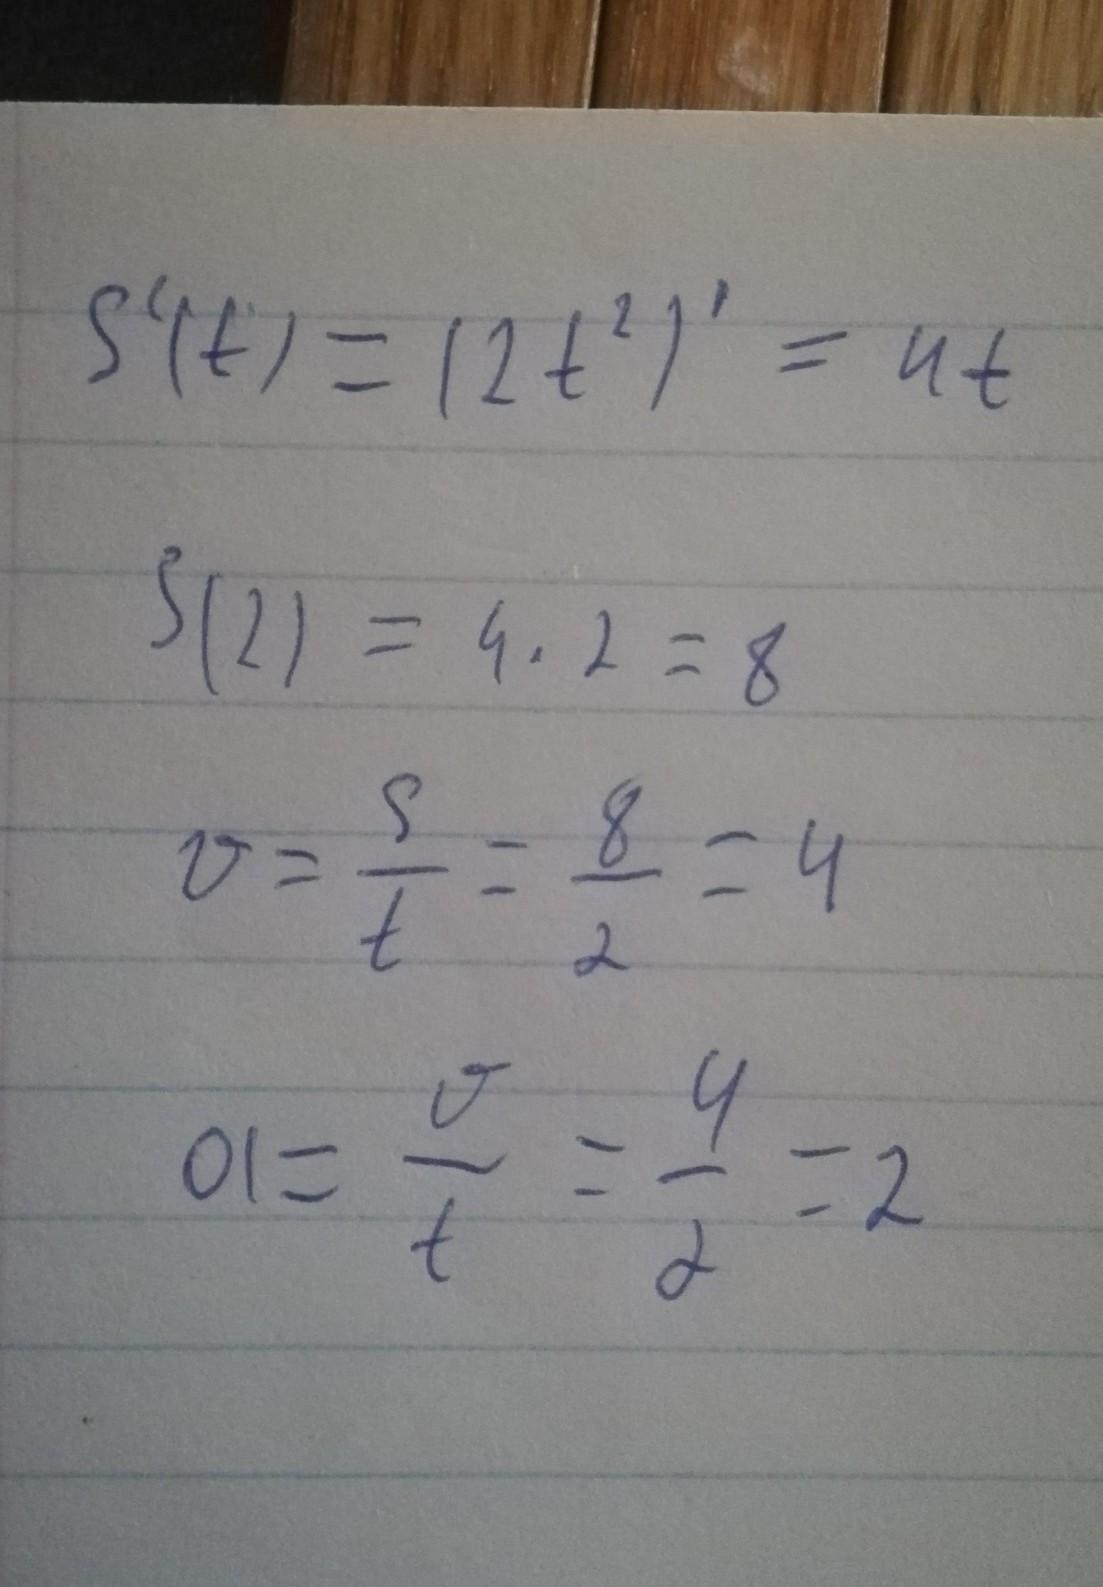 S'(t) = (2t²)' = 4t
S(2) = 4 · 2 = 8
v = s/t = 8/2 = 4
a = v/t = 4/2 = 2